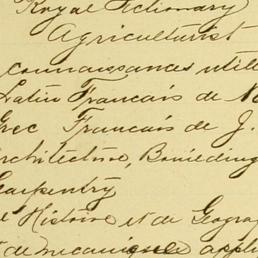 Royal Dictionary
Agriculturist
connaissances utile
Latin Francais de No
Grec Francais de J.
Architecture, Building
Carpentry
Histoire et de Geogra
de mecanique appli